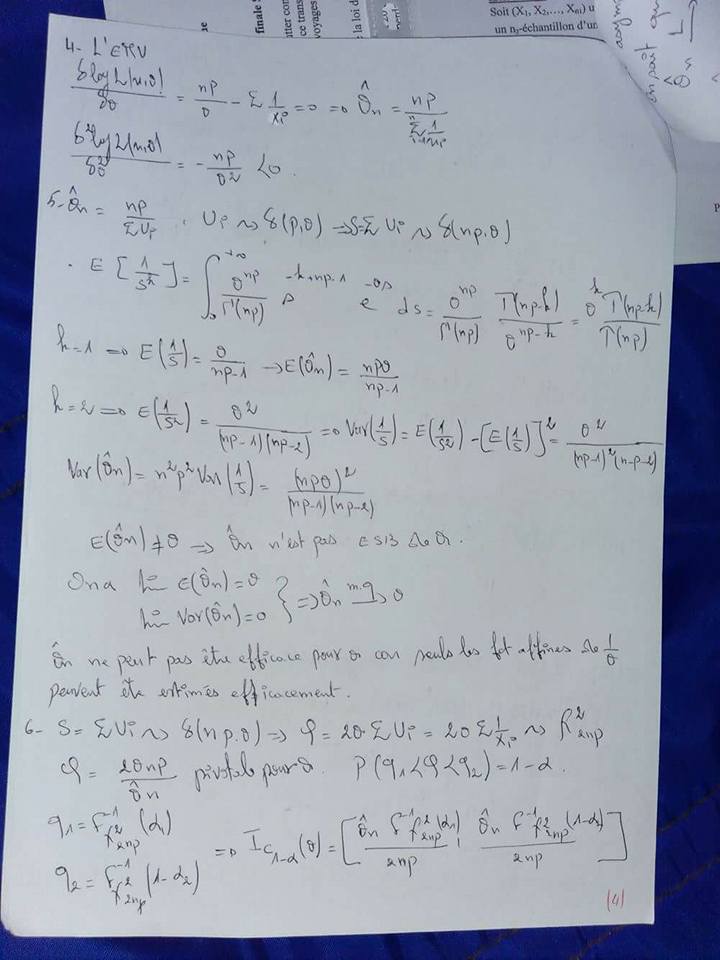 finale S
voyages
Soit (X₁, X₂,..., Xₙ₁) u
un n₂-échantillon d'un
4- L'EMV
δlog L(x,θ)/δθ = np/θ - Σ 1/xᵢ = 0 ⇒ θ̂ₙ = np/Σⁿᵢ₌₁ 1/xᵢ
δ²log L(x,θ)/δθ² = - np/θ² < 0.
5- θ̂ₙ = np/ΣUᵢ . Uᵢ ~> γ(p,θ) ⇒ S=ΣUᵢ ~> γ(np,θ)
. E[1/Sᵏ] = ∫₀^+∞ θⁿᵖ/Γ(np) s^(-k+np-1) e^(-θs) ds = θⁿᵖ/Γ(np) Γ(np-k)/θ^(np-k) = θᵏ Γ(np-k)/Γ(np)
k=1 ⇒ E(1/S) = θ/(np-1) → E(θ̂ₙ) = npθ/(np-1)
k=2 ⇒ E(1/S²) = θ²/((np-1)(np-2)) ⇒ Var(1/S) = E(1/S²) - [E(1/S)]² = θ²/((np-1)²(n-p-2))
Var(θ̂ₙ) = n²p² Var(1/S) = (npθ)²/((np-1)(np-2))
E(θ̂ₙ) ≠ θ ⇒ θ̂ₙ n'est pas ESB de θ.
On a lim E(θ̂ₙ) = θ
lim Var(θ̂ₙ) = 0 } ⇒ θ̂ₙ m.q→ θ
θ̂ₙ ne peut pas être efficace pour θ car seules les fct affines de 1/θ
peuvent être estimés efficacement.
6- S = ΣUᵢ ~> γ(np,θ) ⇒ φ = 2θ ΣUᵢ = 2θ Σ 1/xᵢ ~> χ²₂ₙₚ
φ = 2θnp/θ̂ₙ pivotale pour θ. P(q₁<φ<q₂) = 1-α.
q₁ = F⁻¹χ²₂ₙₚ(α₁)
⇒ Ic₁₋α(θ) = [θ̂ₙ F⁻¹χ²₂ₙₚ(α₁)/2np , θ̂ₙ F⁻¹χ²₂ₙₚ(1-α₂)/2np]
q₂ = F⁻¹χ²₂ₙₚ(1-α₂)
(4)